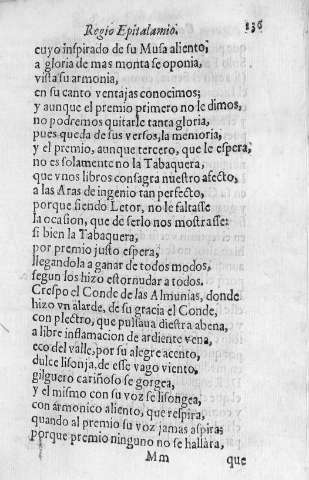 Regio Epitalamio. 136
cuyo inspirado de su Musa aliento,
a gloria de mas monta se oponia,
vista su armonia,
en su canto ventajas conocimos;
y aunque el premio primero no le dimos,
no podremos quitarle tanta gloria,
pues queda de sus versos, la memoria,
y el premio, aunque tercero, que le espera,
no es solamente no la Tabaquera,
que vnos libros consagra nuestro afecto,
a las Aras de ingenio tan perfecto,
porque siendo Letor, no le faltasse
la ocasion, que de serlo nos mostrasse:
si bien la Tabaquera,
por premio justo espera,
llegandola a ganar de todos modos,
segun los hizo estornudar a todos.
Crespo el Conde de las Almunias, donde
hizo vn alarde, de su gracia el Conde,
con plectro, que pulsaua diestra abena,
a libre inflamacion de ardiente vena,
eco del valle, por su alegre acento,
dulce lisonja, de esse vago viento,
gilguero cariñoso se gorgea,
y el mismo con su voz se lisongea,
con armonico aliento, que respira,
quando al premio su voz jamas aspira;
porque premio ninguno no se hallàra,
Mm que